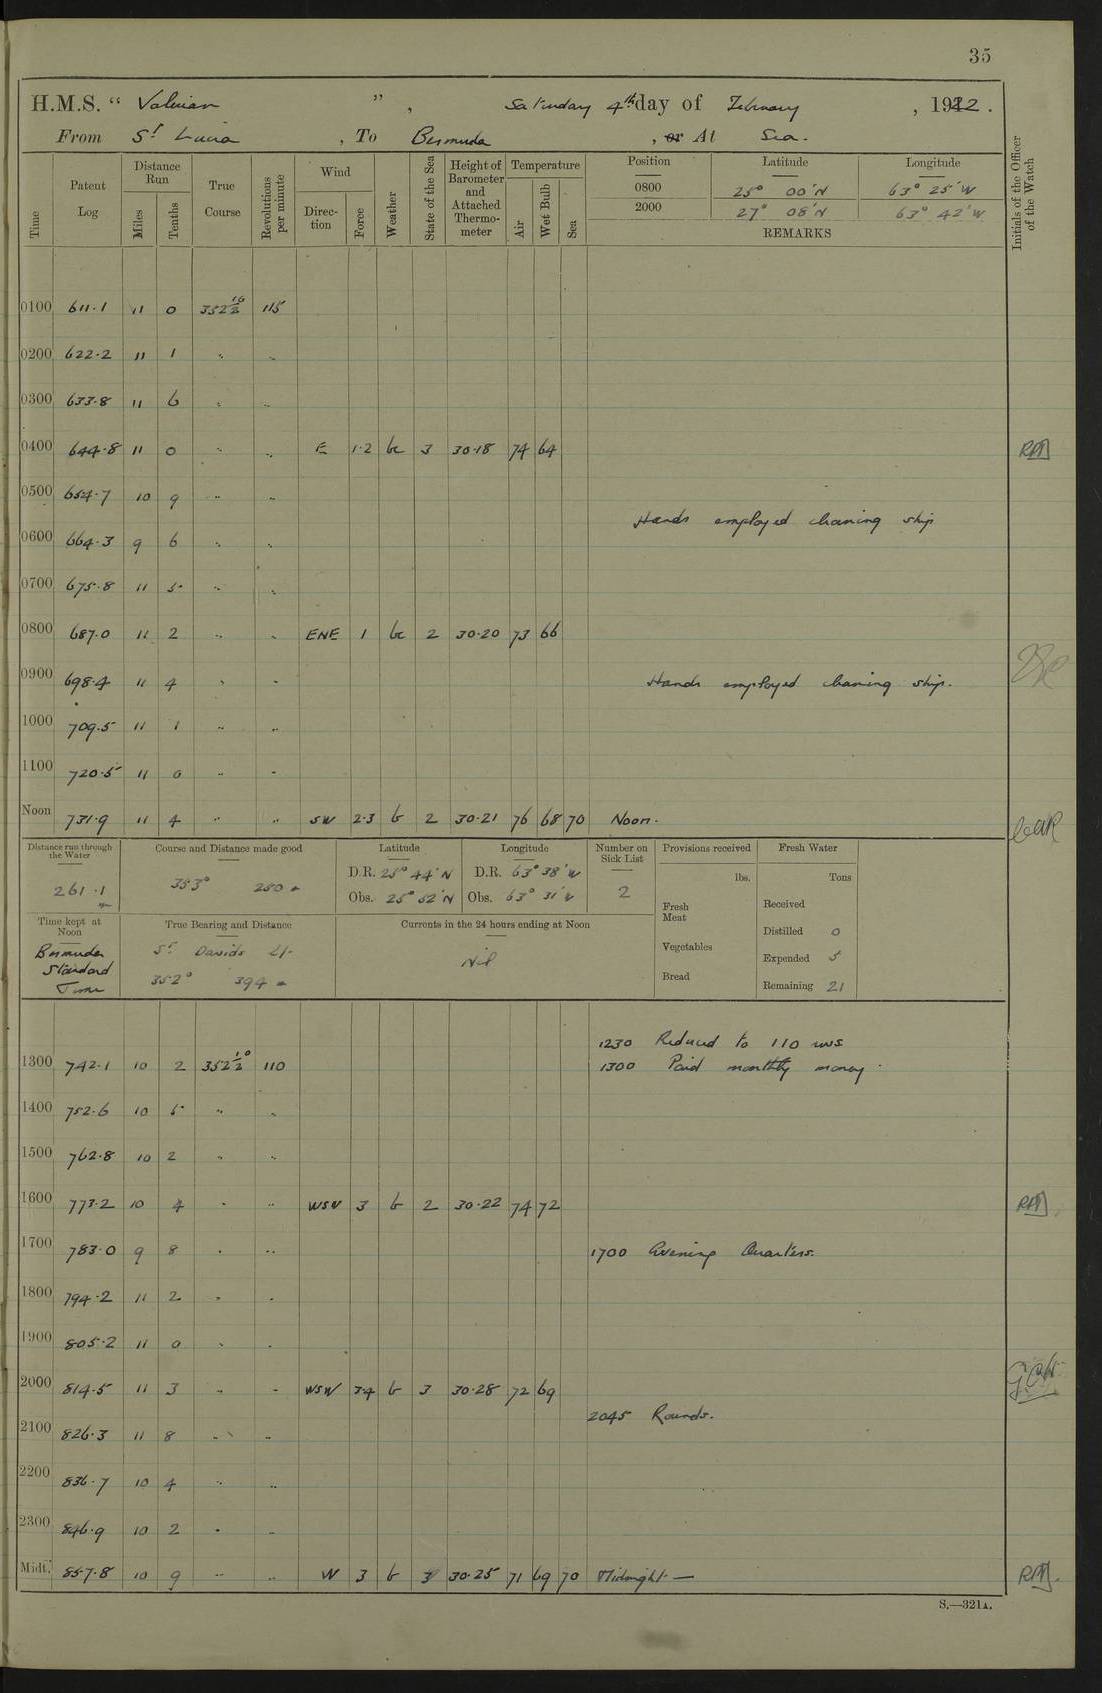 35
H.M.S. “ Valerian ” , Saturday 4th day of February , 1922 .
From St Lucia , To Bermuda , or At Sea.
Time
Patent Log
Distance Run
Miles
Tenths
True Course
Revolutions per minute
Wind
Direction
Force
Weather
State of the Sea
Height of Barometer and Attached Thermometer
Temperature
Air
Wet Bulb
Sea
Position Latitude Longitude
0800 25° 00' N 63° 25' W
2000 27° 08' N 63° 42' W
REMARKS
Initials of the Officer of the Watch
0100 611.1 11 0 352½ 115
0200 622.2 11 1 " "
0300 633.8 11 6 " "
0400 644.8 11 0 " " E 1.2 bc 3 30.18 74 64
0500 654.7 10 9 " "
Hands employed cleaning ship
0600 664.3 9 6 " "
0700 675.8 11 5 " "
0800 687.0 11 2 " " ENE 1 bc 2 30.20 73 66
0900 698.4 11 4 " " Hands employed cleaning ship.
1000 709.5 11 1 " "
1100 720.5 11 0 " "
Noon 731.9 11 4 " " SW 2.3 b 2 30.21 76 68 70 Noon.
Distance run through the Water
261.1
Course and Distance made good
353° 250
Latitude
D.R. 25° 44' N
Obs. 25° 52' N
Longitude
D.R. 63° 38' W
Obs. 63° 31' W
Number on Sick List
2
Provisions received
lbs.
Fresh Meat
Vegetables
Bread
Fresh Water
Tons
Received
Distilled 0
Expended 5
Remaining 21
Time kept at Noon
Bermuda Standard Time
True Bearing and Distance
St Davids Lt.
352° 394
Currents in the 24 hours ending at Noon
Nil
1230 Reduced to 110 revs
1300 742.1 10 2 352½ 110 1300 Paid monthly money.
1400 752.6 10 5 " "
1500 762.8 10 2 " "
1600 773.2 10 4 " " WSW 3 b 2 30.22 74 72
1700 783.0 9 8 " " 1700 Evening Quarters.
1800 794.2 11 2 " "
1900 805.2 11 0 " "
2000 814.5 11 3 " " WSW 3.4 b 3 30.28 72 69
2045 Rounds.
2100 826.3 11 8 " "
2200 836.7 10 4 " "
2300 846.9 10 2 " "
Midt. 857.8 10 9 " " W 3 b 3 30.25 71 69 70 Midnight —
S.—321A.